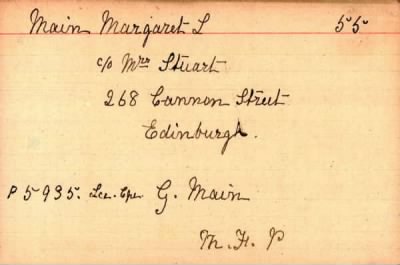 Main Margaret L 55
c/o Mrs Stuart
268 Cannon Street
Edinburgh.
P 5935. Lce. Cpr. G. Main
M. F. P